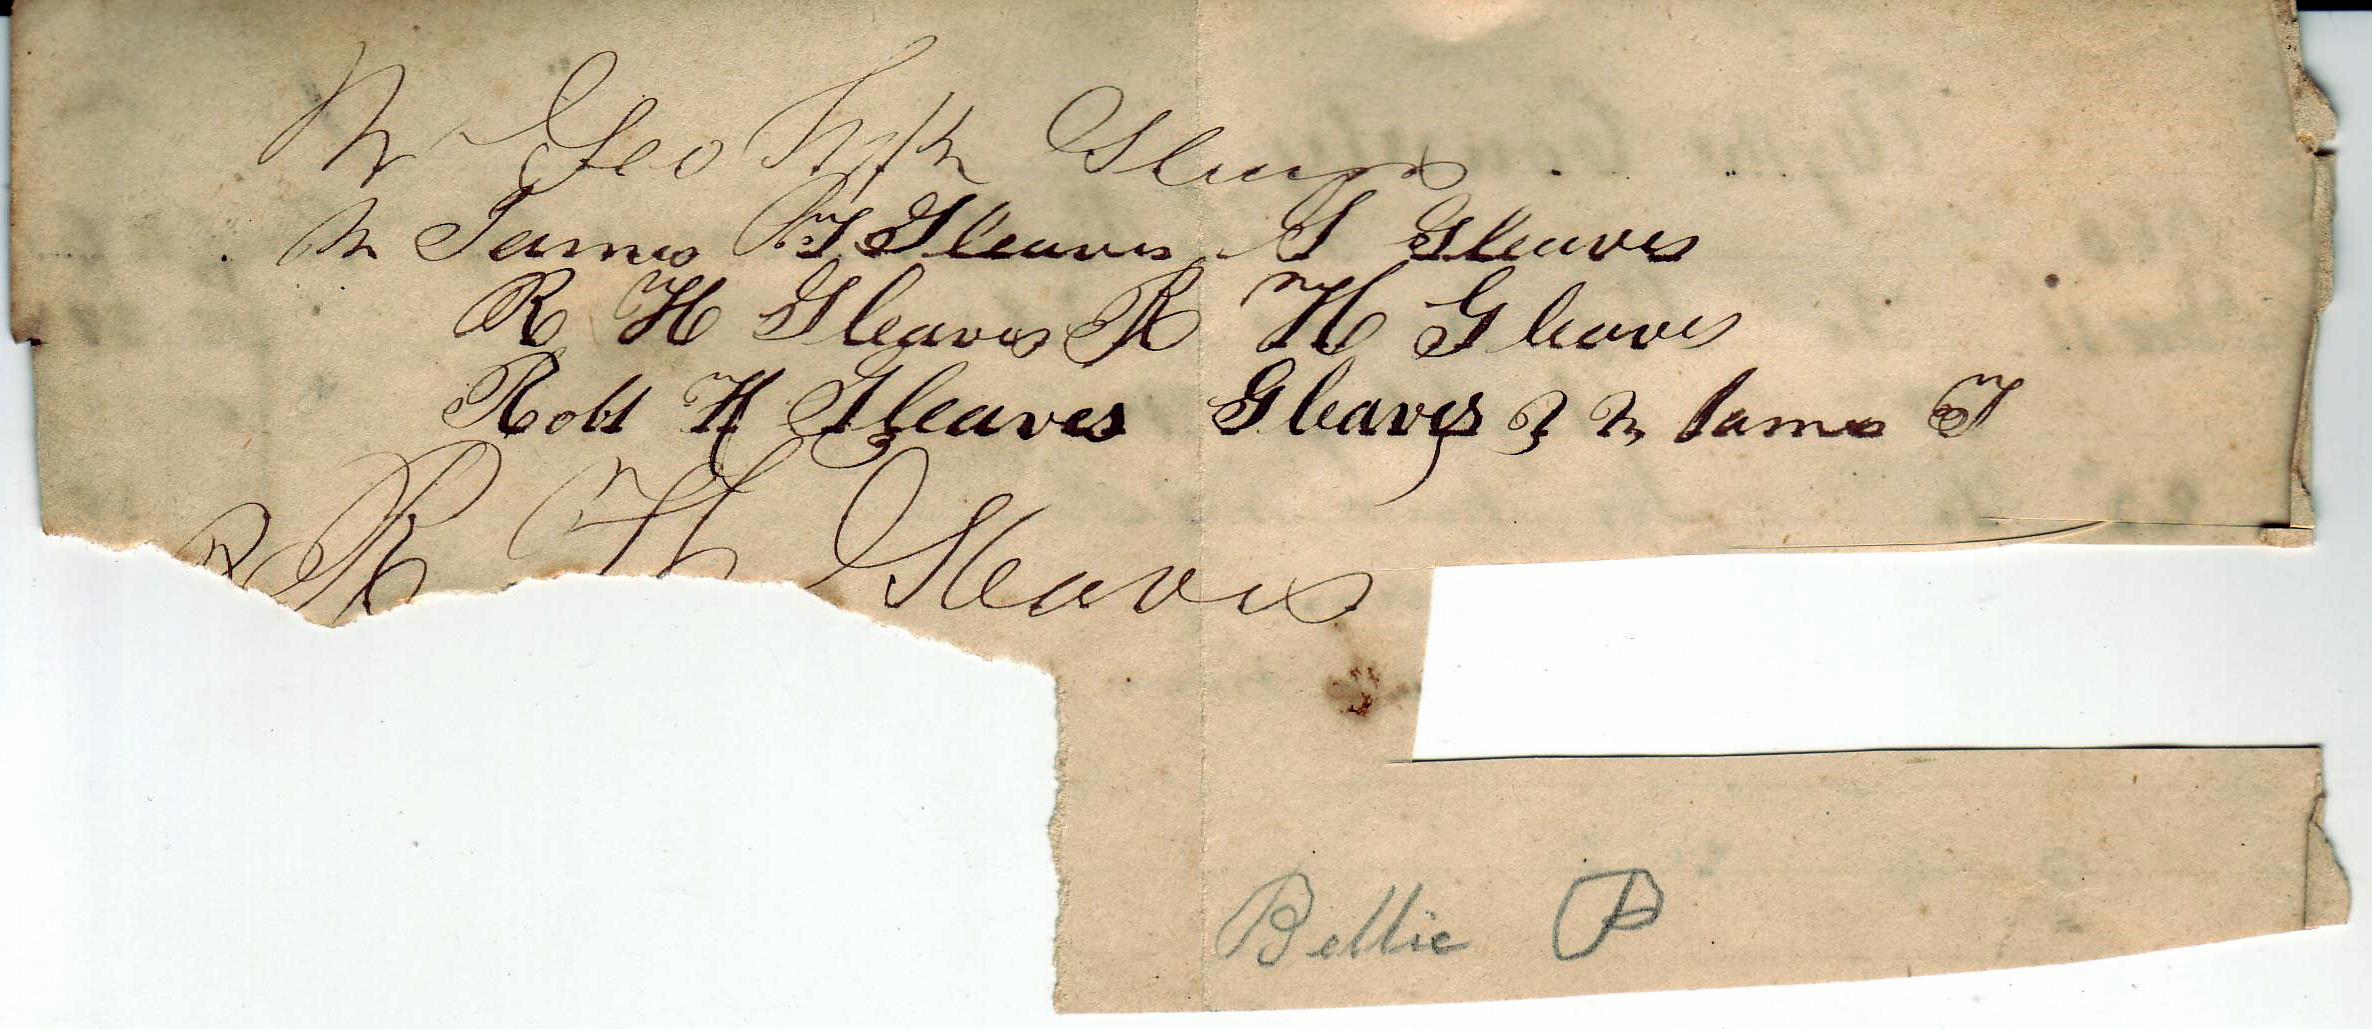 Mr Geo
Mr James T Gleaves T Gleaves
R H Gleaves R H Gleaves
Robt H Gleaves Gleaves James T
R R H Gleaves
Bellie P